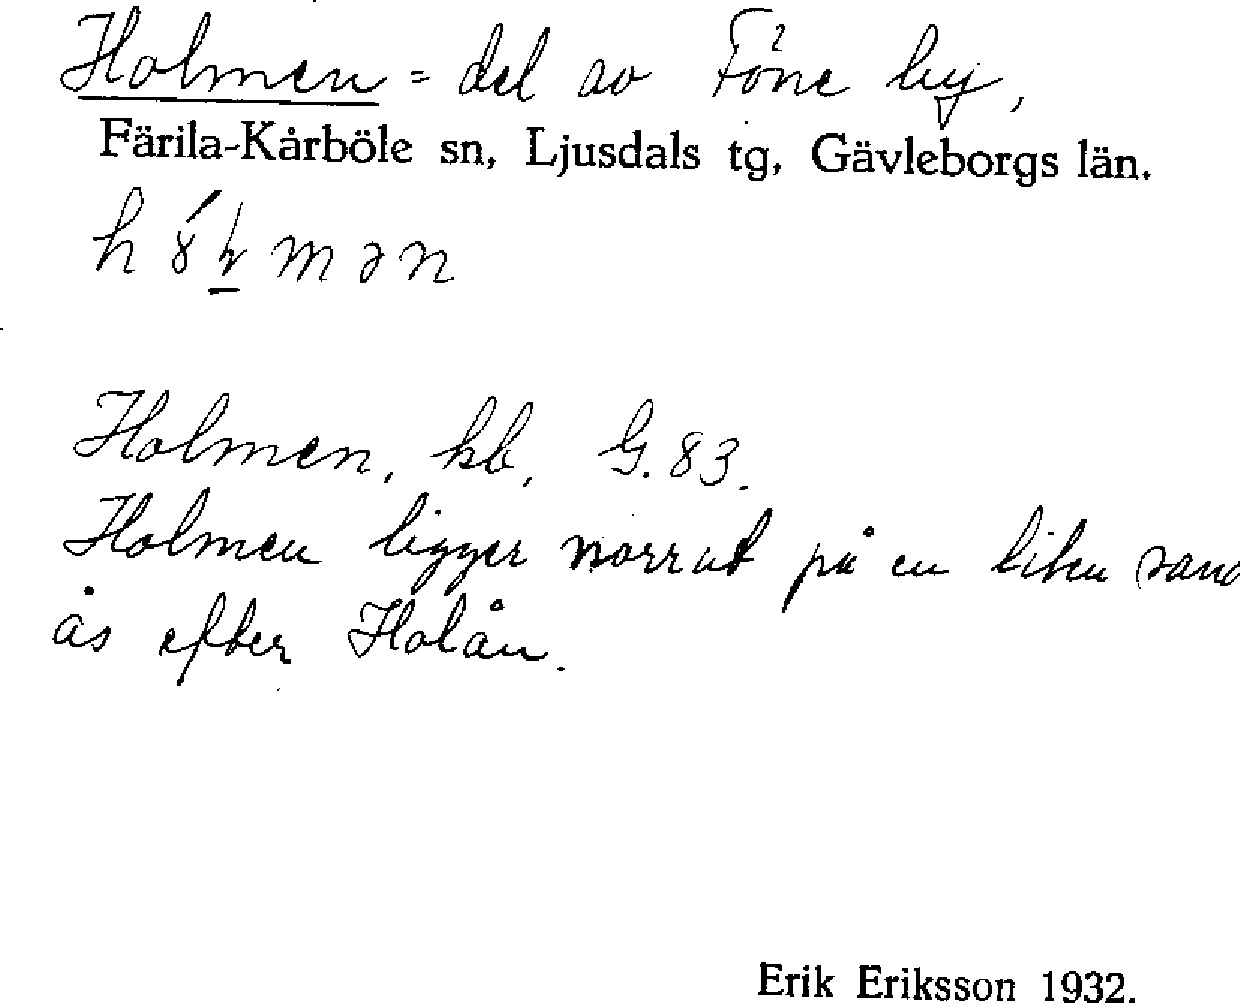 Holmen = del av Föne by,
Färila-Kårböle sn, Ljusdals tg, Gävleborgs län.
Holmen, kb, G. 83.
Holmen ligger norrut på en liten sand
ås efter Holån.
Erik Eriksson 1932.